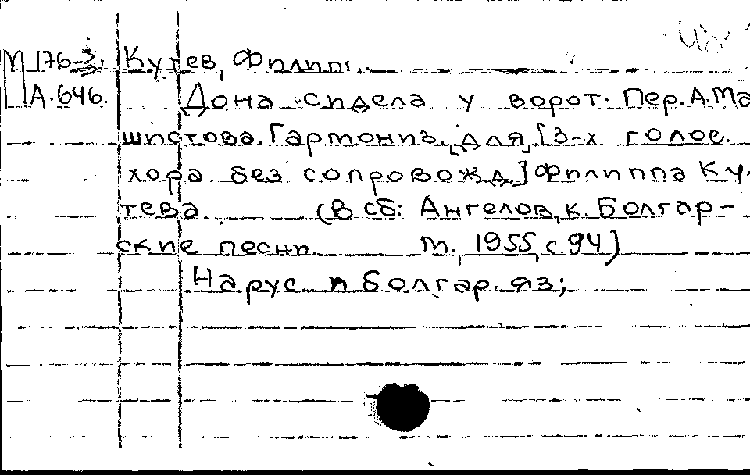 М 176-3. Кутев, Филипп.
А.646. Дона сидела у ворот. Пер. А. Ма
шистова. Гармониз. для [3-х голос.
хора без сопровожд.] Филиппа Ку-
тева (В сб: Ангелов, К. Болгар-
ские песни м., 1955, с 94)
На рус и болгар. яз;